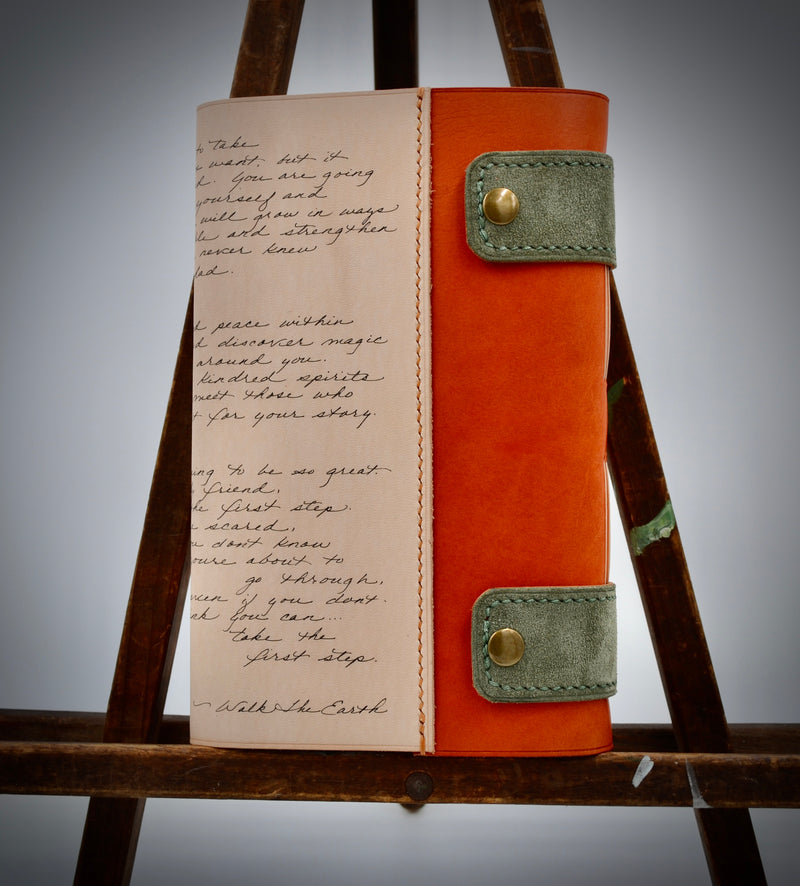 to take
want, but it
. You are going
yourself and
will grow in ways
and strengthen
never knew
had.
peace within
discover magic
around you.
kindred spirits
meet those who
for your story.
ing to be so great.
friend,
the first step.
scared,
dont know
you're about to
go through,
even if you dont.
nk you can...
take the
first step.
~ Walk the Earth